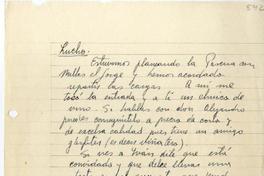 Lucho:
Estuvimos planeando la Pascua con
Matta el Jorge y hemos acordado
repartir las cargas. A mí me
tocó la entrada y a ti un chuico de
vino. Si hablas con don Alejandro
puedes conseguirtelo a precio de costo y
de excelsa calidad pues tiene un amigo
(es decir vinatero).
Si ves a Iván dile que está
convidado y que debe llevar una